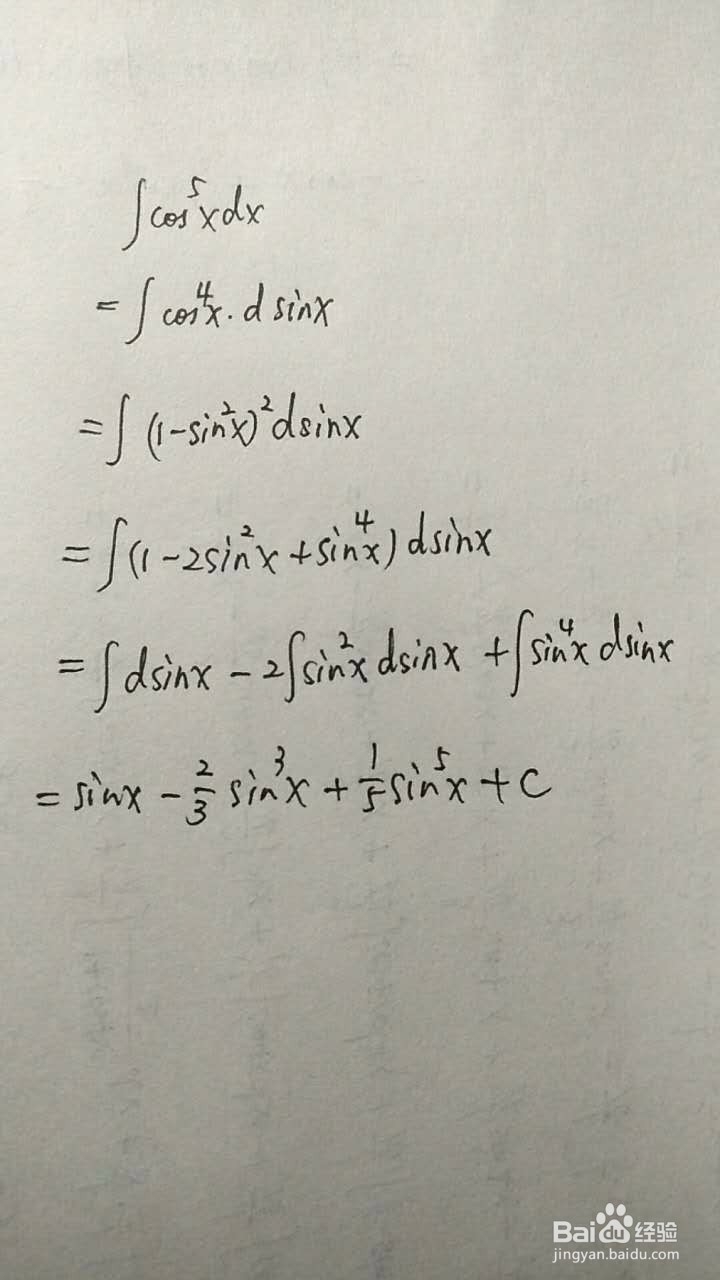 ∫cos⁵xdx
= ∫cos⁴x·d sinx
= ∫(1-sin²x)²dsinx
= ∫(1-2sin²x+sin⁴x)dsinx
= ∫dsinx - 2∫sin²x dsinx + ∫sin⁴x dsinx
= sinx - 2/3 sin³x + 1/5 sin⁵x + C
Baidu经验
jingyan.baidu.com